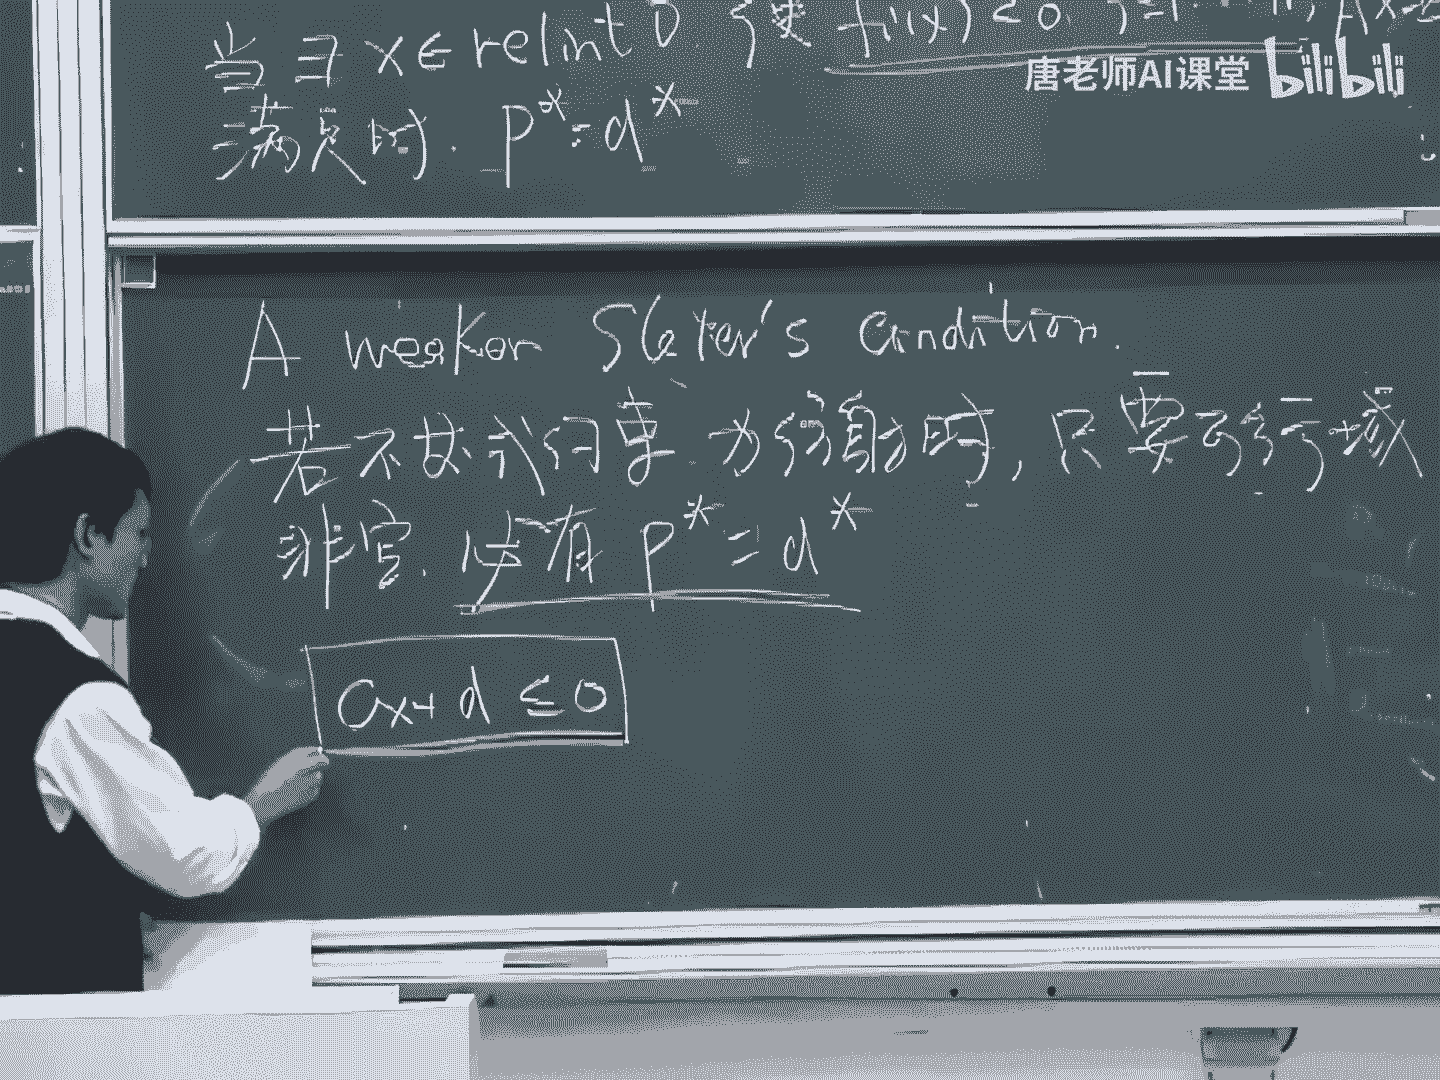 当 ∃ x ∈ relint D 使 fi(x) < 0
唐老师AI课堂 bilibili
满足时. p* = d*
A weaker Slater's condition.
若不等式约束为仿射时,只要可行域
非空.必有 p* = d*
Cx+d ≤ 0